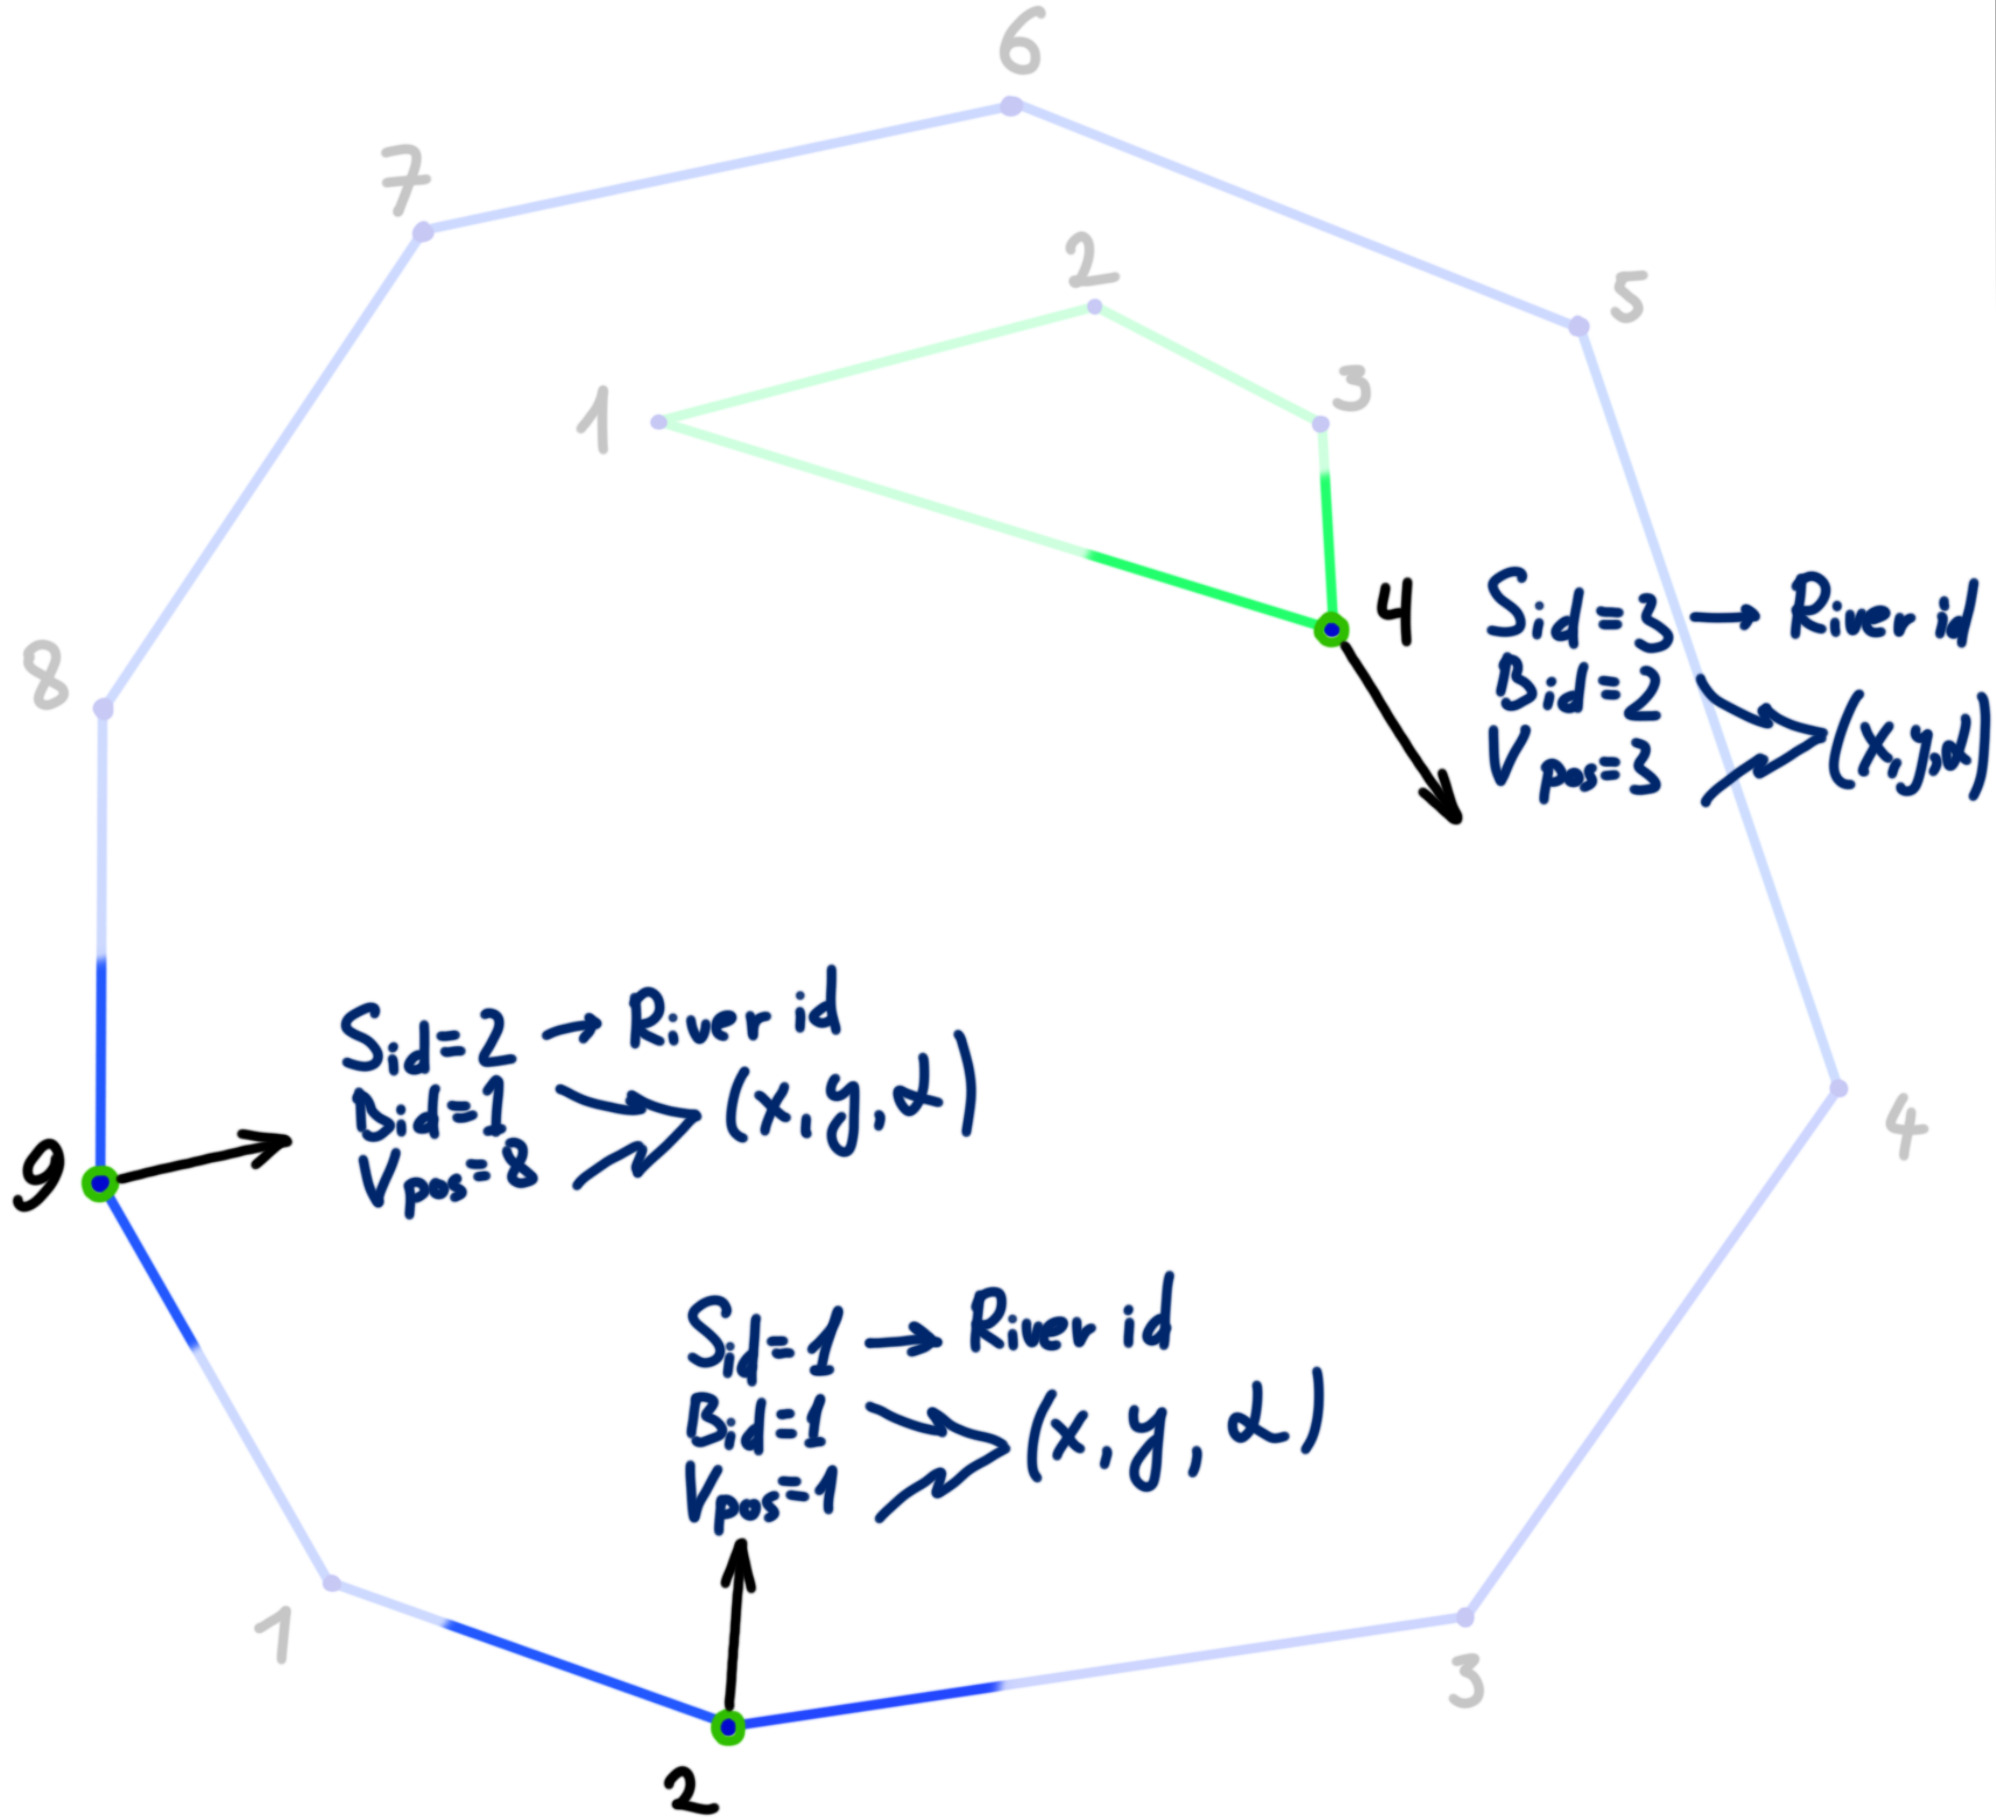 6
7
2
5
3
1
4
Sid=3 → River id
Bid=2
Vpos=3
(x,y,α)
8
Sid=2 → River id
Bid=1
Vpos=8
(x,y,α)
9
4
Sid=1 → River id
Bid=1
Vpos=1
(x,y,α)
1
3
2